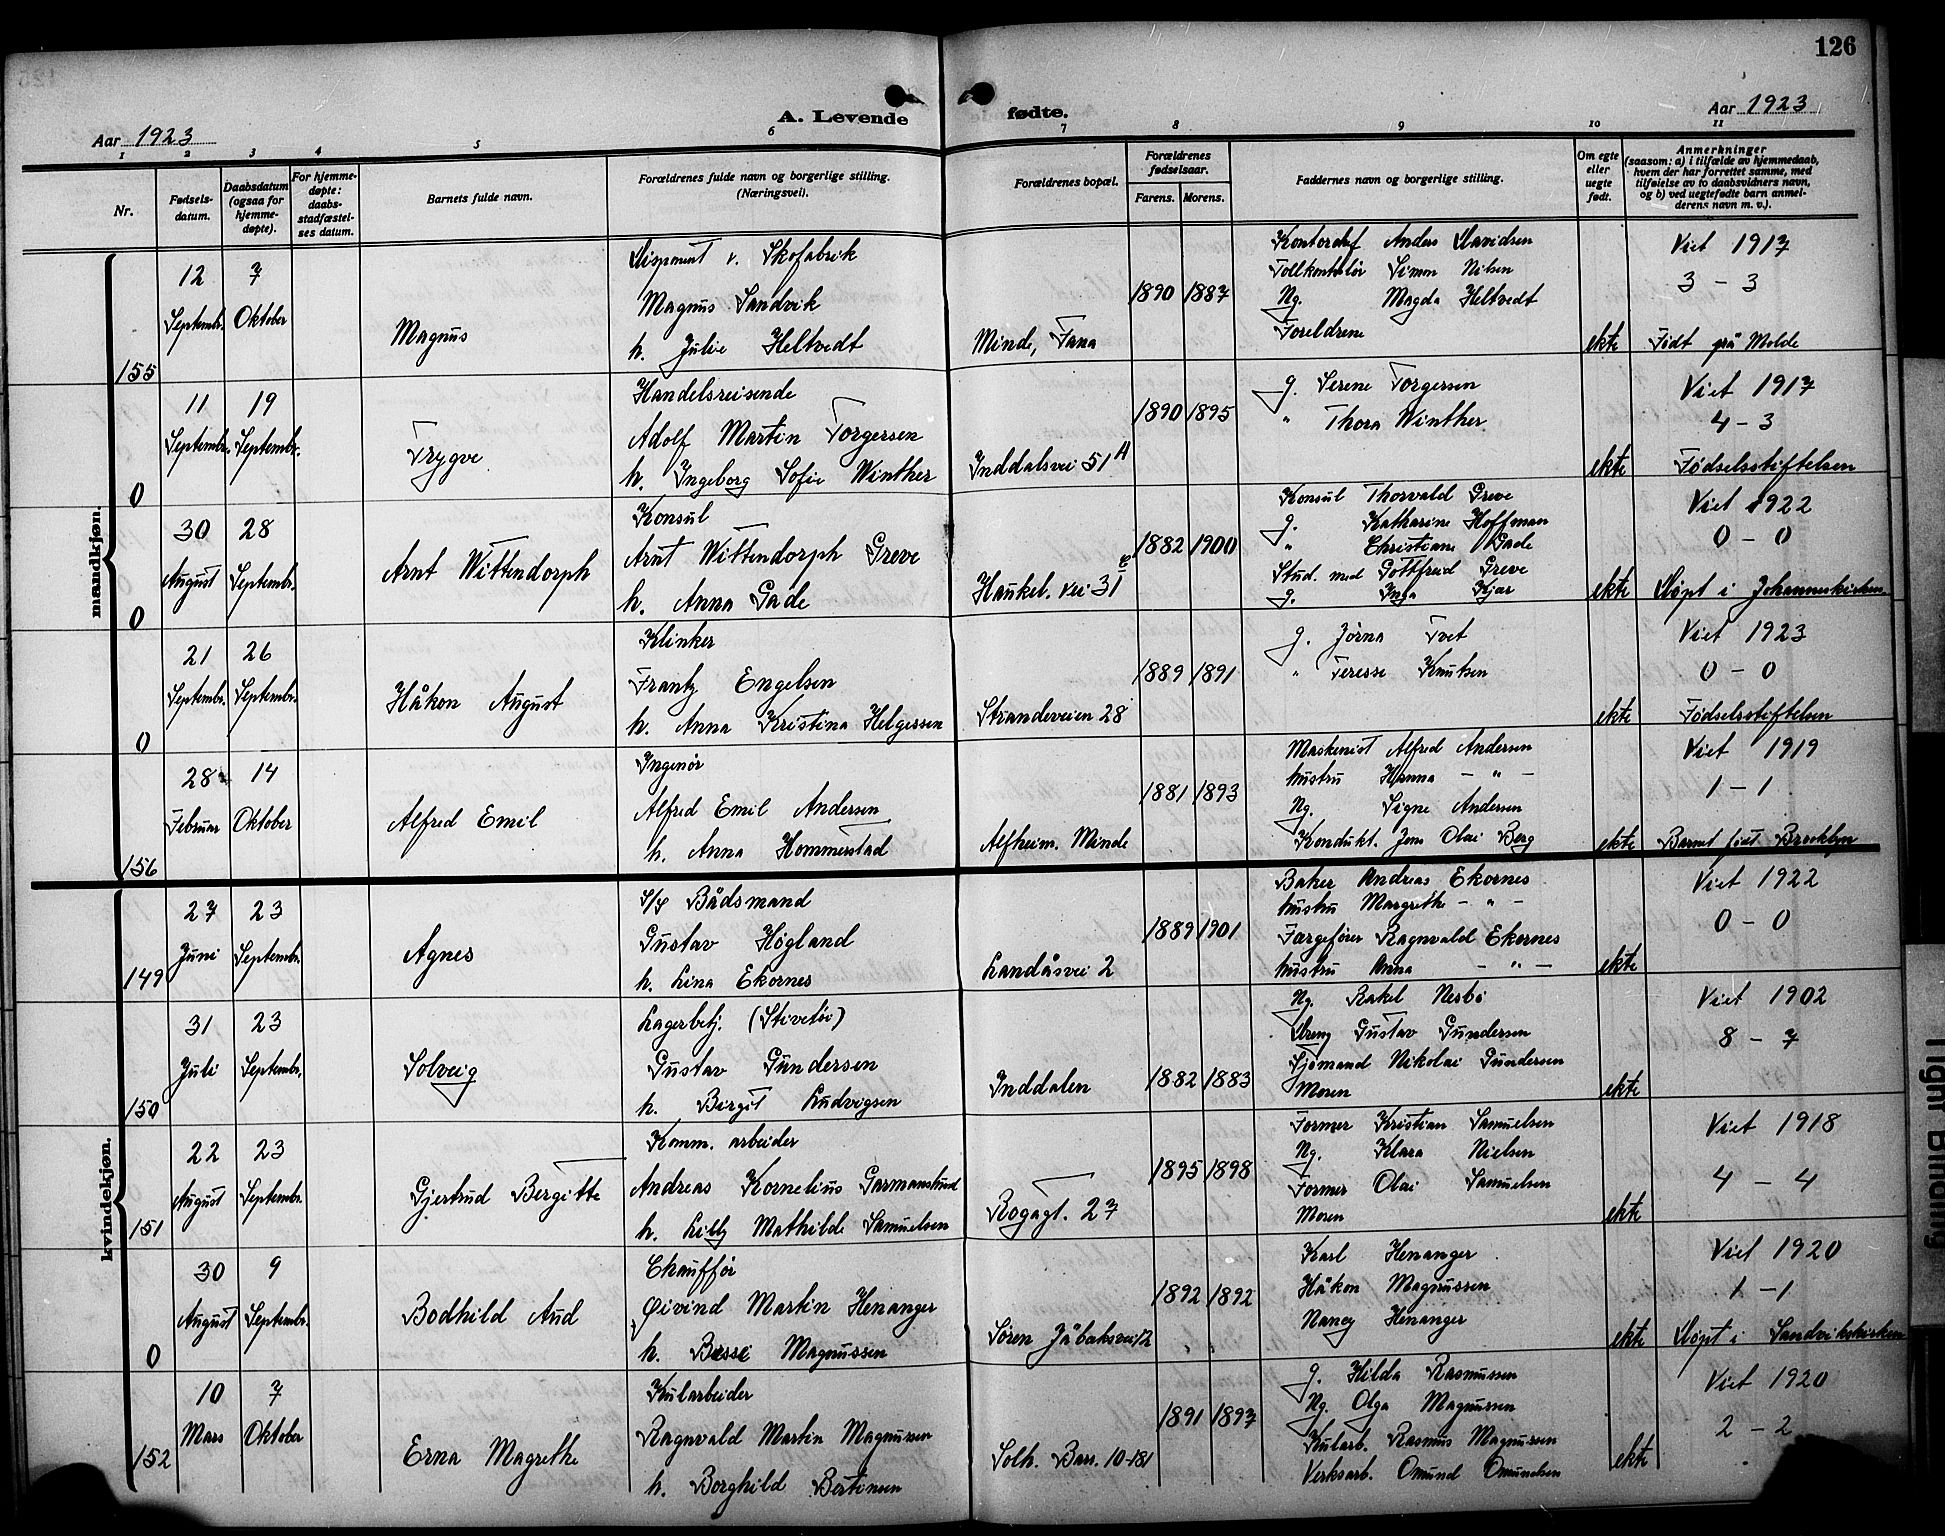 126
Aar 1923
A. Levende fødte.
Aar 1923
1 2 3 4 5 6 7 8 9 10 11
Nr.
Fødsels-
datum.
Daabsdatum
(ogsaa for
hjemme-
døpte).
For hjemme-
døpte:
daabs-
stadfæstel-
ses datum.
Barnets fulde navn.
Forældrenes fulde navn og borgerlige stilling.
(Næringsvei).
Forældrenes bopæl.
Forældrenes
fødselsaar.
Farens. Morens.
Faddernes navn og borgerlige stilling.
Om egte
eller
uegte
født.
Anmerkninger
(saasom: a) i tilfælde av hjemmedaab,
hvem der har forrettet samme, med
tilføielse av to daabsvidners navn,
og b) ved uegtefødte barn anmel-
derens navn m. v.).
mandkjøn.
155
12
Septembr.
7
Oktober
Magnus
Disponent v. Skofabrik
Magnus Sandvik
h. Julie Heltvedt
Minde, Fana
1890 1887
Kontorchef Anders Davidsen
Tollkontrolør Simon Nilsen
Ng. Magda Heltvedt
Foreldrene
ekte
Viet 1917
3 - 3
Født på Molde
0
11
Septembr.
19
Septembr.
Trygve
Handelsreisende
Adolf Martin Torgersen
h. Ingeborg Sofie Winther
Inddalsvei 51 A
1890 1895
g. Serene Torgersen
" Thora Winther
ekte
Viet 1917
4 - 3
Fødselsstiftelsen
0
30
August
28
Septembr.
Arnt Wittendorph
Konsul
Arnt Wittendorph Greve
h. Anna Gade
Haukel. vei 31
1882 1900
Konsul Thorvald Greve
g. Katharine Hoffman
" Christiane Gade
Stud. med Gottfried Greve
g. Inga Kjær
ekte
Viet 1922
0 - 0
Døpt i Johanneskirken
0
21
Septembr.
26
Septembr.
Håkon August
Klinker
Frantz Engelsen
h. Anna Kristina Helgessen
Strandeveien 28
1889 1891
g. Jørna Tvet
" Teresse Knutsen
ekte
Viet 1923
0 - 0
Fødselsstiftelsen
156
28
Februar
14
Oktober
Alfred Emil
Ingeniør
Alfred Emil Andersen
h. Anna Hommerstad
Alfheim. Minde
1881 1893
Maskenist Alfred Andersen
hustru Hanna - " -
Ng. Signe Andersen
Kondukt. Jens Olai Berg
ekte
Viet 1919
1 - 1
Barnet født Brooklyn
kvindekjøn.
149
27
Juni
23
Septembr.
Agnes
S/S Bådsmand
Gustav Høgland
h. Lina Ekornes
Landåsvei 2
1889 1901
Baker Andreas Ekornes
hustru Margrethe - " -
Færgefører Ragnvald Ekornes
hustru Anna - " -
ekte
Viet 1922
0 - 0
150
31
Juli
23
Septembr.
Solveig
Lagerbetj. (Stivetøi)
Gustav Gundersen
h. Birgit Ludvigsen
Inddalen
1882 1883
Ng. Rakel Nesbø
Dreng Gustav Gundersen
Sjømand Nikolai Gundersen
Moren
ekte
Viet 1902
8 - 7
151
22
August
23
Septembr.
Gjertrud Bergitte
Komm. arbeider
Andreas Kornelius Garmanslund
h. Lilly Mathilde Samuelsen
Rogagt. 27
1895 1898
Former Kristian Samuelsen
Ng. Klara Nielsen
Former Olai Samuelsen
Moren
ekte
Viet 1918
4 - 4
0
30
August
9
Septembr.
Bodhild Aud
Chaufför
Øivind Martin Henanger
h. Besse Magnussen
Søren Jåbæksvei 12
1892 1892
Karl Henanger
Håkon Magnussen
Nancy Henanger
ekte
Viet 1920
1 - 1
Døpt i Sandvikskirken
152
10
Mars
7
Oktober
Erna Magrethe
Kularbeider
Ragnvald Martin Magnussen
h. Borghild Bertinsen
Solh. Barr. 10-181
1891 1897
g. Hilda Rasmussen
Ng. Olga Magnussen
Kularb. Rasmus Magnussen
Verksarb. Omund Omundsen
ekte
Viet 1920
2 - 2
Tight Binding